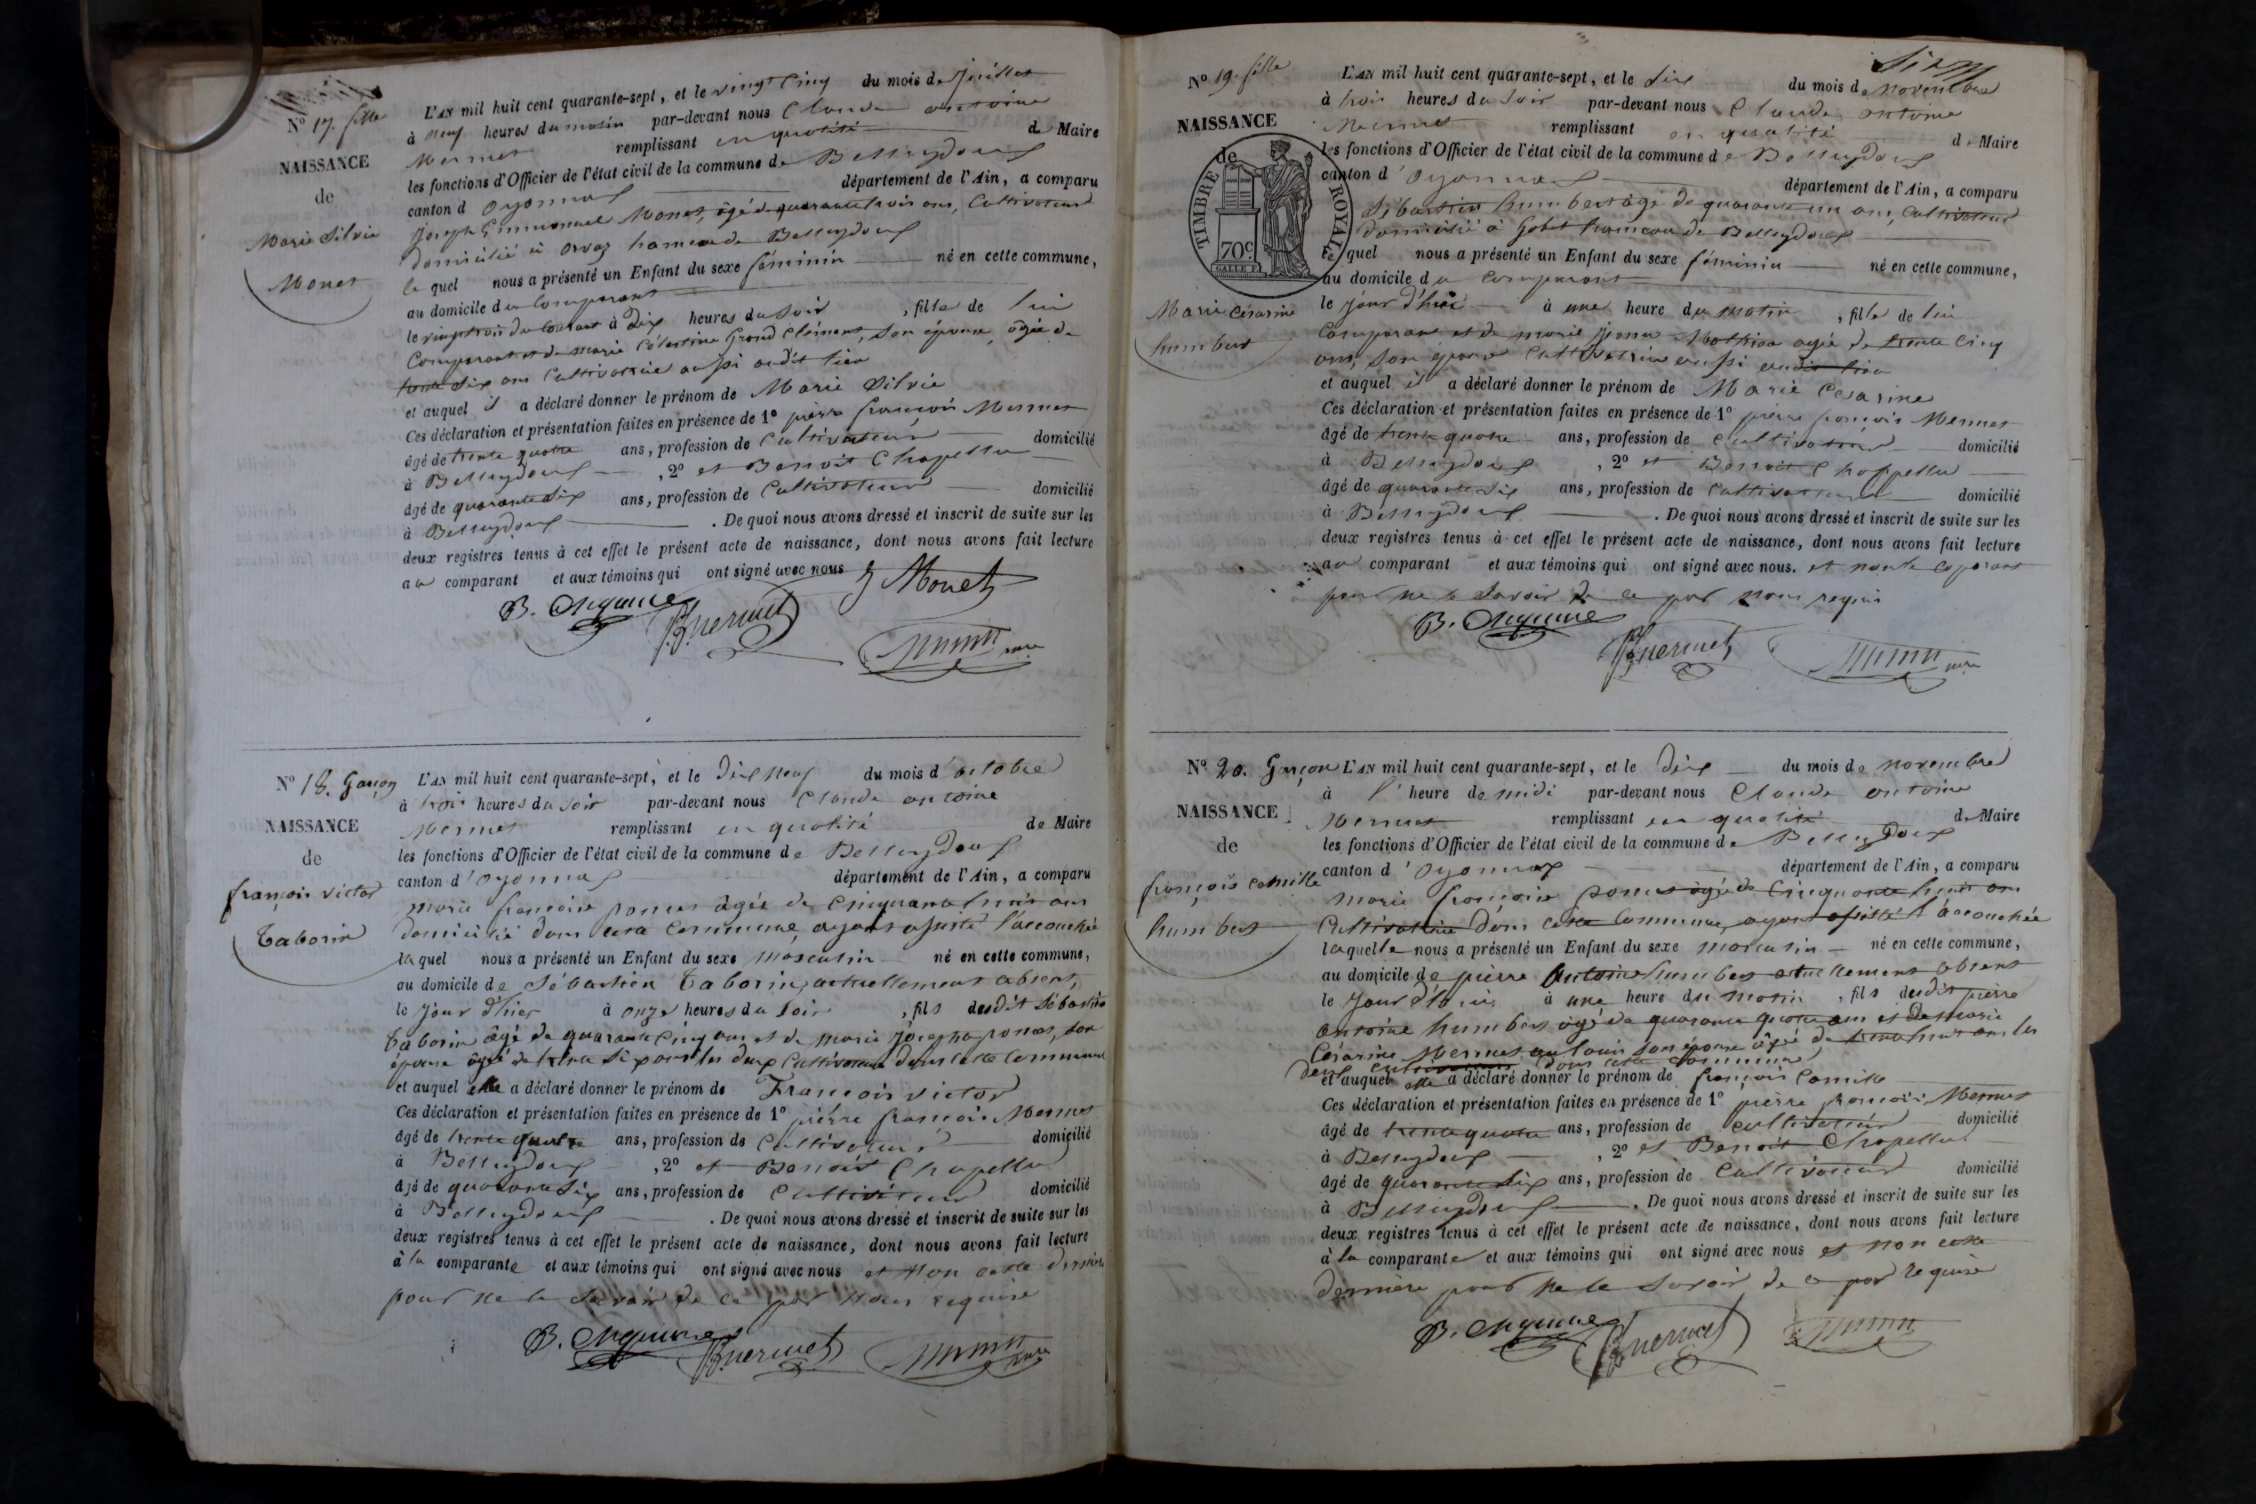 N° 17. fille
NAISSANCE
de
Marie Silvie
Monet
L'AN mil huit cent quarante-sept, et le vingt cinq du mois de Juillet
à neuf heures du matin par-devant nous Claude antoine
Mermet remplissant en qualité de Maire
les fonctions d'Officier de l'état civil de la commune de Belleydoux
canton d'oyonnax département de l'Ain, a comparu
Joseph Emmanuel Monet, âgé de quarante trois ans, Cultivateur
domicilié à orvaz hameau de Belleydoux
le quel nous a présenté un Enfant du sexe féminin né en cette commune,
au domicile du Comparant
le vingt trois du Courant à dix heures du soir, fille de lui
Comparant et de marie Célestine Grand Clément, son épouse, âgée de
trente six ans Cultivatrice aussi audit lieu
et auquel il a déclaré donner le prénom de Marie Silvie
Ces déclaration et présentation faites en présence de 1° pierre françois Mermet
âgé de trente quatre ans, profession de Cultivateur domicilié
à Belleydoux, 2° et Benoit Chapellu
âgé de quarante six ans, profession de Cultivateur domicilié
à Belleydoux. De quoi nous avons dressé et inscrit de suite sur les
deux registres tenus à cet effet le présent acte de naissance, dont nous avons fait lecture
au comparant et aux témoins qui ont signé avec nous
J Monet
B.
Mermet
maire
N° 18. Garçon
NAISSANCE
de
françois victor
Taborin
L'AN mil huit cent quarante-sept, et le dix neuf du mois d'octobre
à trois heures du soir par-devant nous Claude antoine
Mermet remplissant en qualité de Maire
les fonctions d'Officier de l'état civil de la commune de Belleydoux
canton d'oyonnax département de l'Ain, a comparu
marie françoise poncet âgée de cinquante huit ans
domiciliée dans cette commune, ayant assisté l'accouchée
laquel nous a présenté un Enfant du sexe masculin né en cette commune,
au domicile de Sébastien Taborin, actuellement absent,
le jour d'hier à onze heures du soir, fils dudit Sébastien
Taborin âgé de quarante cinq ans et de marie Josephte poncet, son
épouse âgée de trente six ans les deux Cultivateurs dans cette Commune
et auquel elle a déclaré donner le prénom de François victor
Ces déclaration et présentation faites en présence de 1° pierre françois Mermet
âgé de trente quatre ans, profession de Cultivateur domicilié
à Belleydoux, 2° et Benoit Chapellu
âgé de quarante six ans, profession de Cultivateur domicilié
à Belleydoux. De quoi nous avons dressé et inscrit de suite sur les
deux registres tenus à cet effet le présent acte de naissance, dont nous avons fait lecture
à la comparante et aux témoins qui ont signé avec nous et non cette dernière
pour ne le savoir de ce par nous requise
B.
Mermet
maire
N° 19. fille
NAISSANCE
de
TIMBRE ROYAL
70c
Marie Césarine
humbert
L'AN mil huit cent quarante-sept, et le dix du mois de novembre
à trois heures du soir par-devant nous Claude antoine
Mermet remplissant en qualité de Maire
les fonctions d'Officier de l'état civil de la commune de Belleydoux
canton d'oyonnax département de l'Ain, a comparu
Sébastien humbert âgé de quarante un ans, Cultivateur
domicilié à Gobet hameau de Belleydoux
le quel nous a présenté un Enfant du sexe féminin né en cette commune,
au domicile du Comparant
le jour d'hier à une heure du matin, fille de lui
Comparant et de marie âgée de trente cinq
ans, son épouse Cultivatrice aussi audit lieu
et auquel il a déclaré donner le prénom de Marie Césarine
Ces déclaration et présentation faites en présence de 1° pierre françois Mermet
âgé de trente quatre ans, profession de Cultivateur domicilié
à Belleydoux, 2° et Benoit Chappellu
âgé de quarante six ans, profession de Cultivateur domicilié
à Belleydoux. De quoi nous avons dressé et inscrit de suite sur les
deux registres tenus à cet effet le présent acte de naissance, dont nous avons fait lecture
au comparant et aux témoins qui ont signé avec nous. et non le coparant
pour ne le savoir de ce par nous requis
B.
Mermet
maire
N° 20. Garçon
NAISSANCE
de
françois camille
humbert
L'AN mil huit cent quarante-sept, et le dix du mois de novembre
à l'heure de midi par-devant nous Claude antoine
Mermet remplissant en qualité de Maire
les fonctions d'Officier de l'état civil de la commune de Belleydoux
canton d'oyonnax département de l'Ain, a comparu
marie françoise poncet âgée de cinquante huit ans
Cultivatrice dans cette Commune, ayant assisté l'accouchée
laquelle nous a présenté un Enfant du sexe masculin né en cette commune,
au domicile de pierre Antoine humbert actuellement absent
le jour d'hier à une heure du matin, fils dudit pierre
antoine humbert âgé de quarante quatre ans et de marie
Césarine Mermet son épouse âgée de trente huit ans les
deux cultivateurs dans cette commune
et auquel elle a déclaré donner le prénom de françois camille
Ces déclaration et présentation faites en présence de 1° pierre françois Mermet
âgé de trente quatre ans, profession de cultivateur domicilié
à Belleydoux, 2° et Benoit Chapellu
âgé de quarante six ans, profession de Cultivateur domicilié
à Belleydoux. De quoi nous avons dressé et inscrit de suite sur les
deux registres tenus à cet effet le présent acte de naissance, dont nous avons fait lecture
à la comparante et aux témoins qui ont signé avec nous et non cette
dernière pour ne le savoir de ce par requise
B.
Mermet